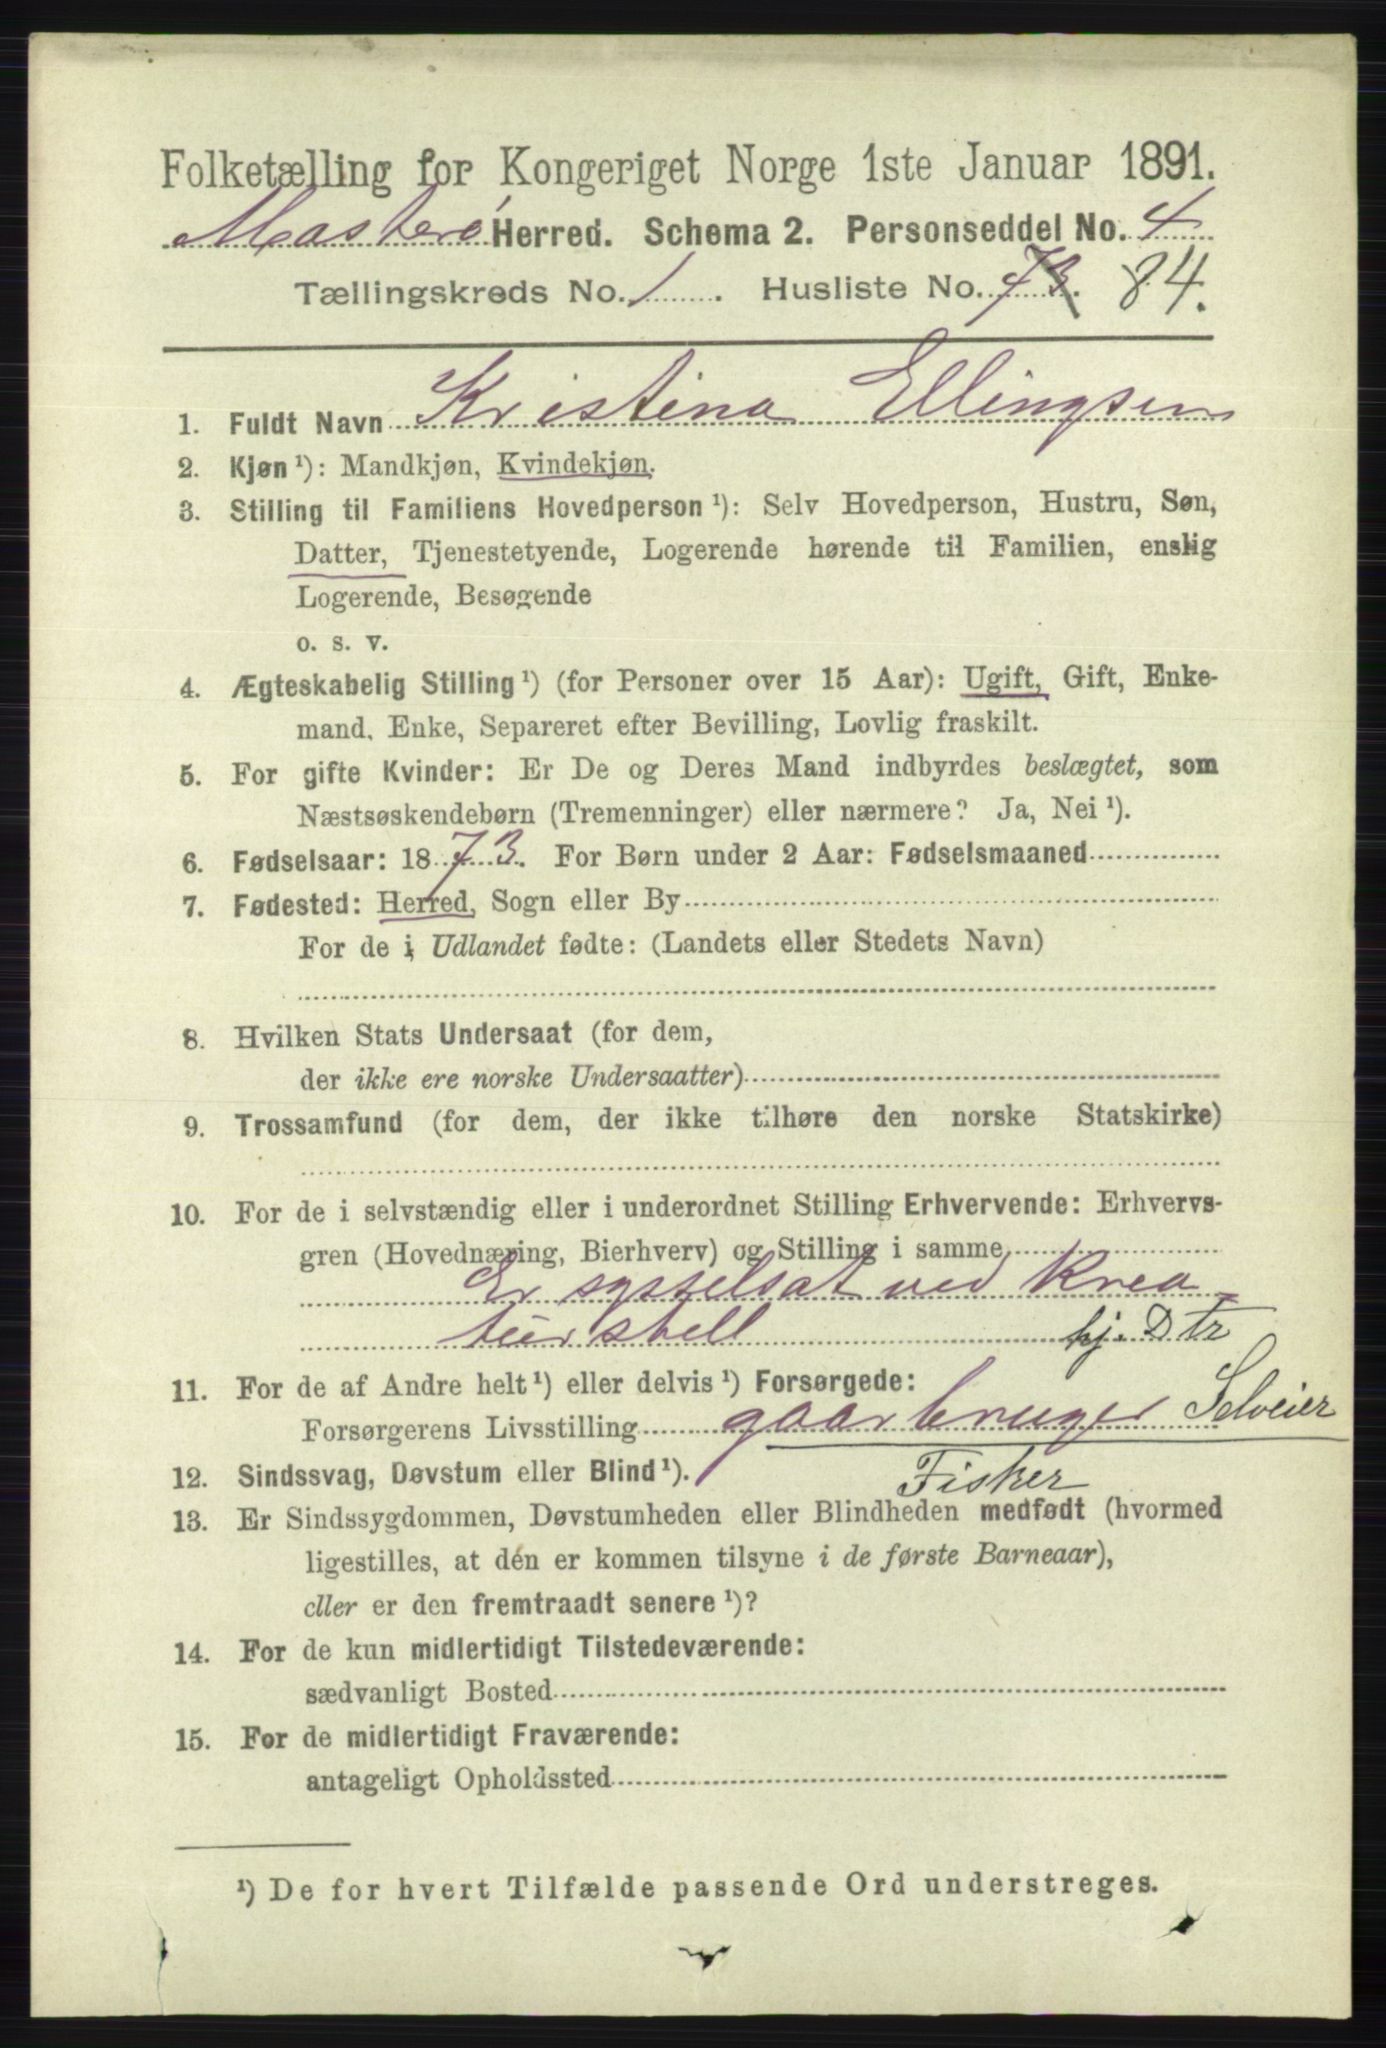 Folketælling for Kongeriget Norge 1ste Januar 1891.
Masterø Herred. Schema 2. Personseddel No. 4
Tællingskreds No. 1. Husliste No. 73. 84.
1. Fuldt Navn Kristina Ellingsen
2. Kjøn ¹): Mandkjøn, Kvindekjøn.
3. Stilling til Familiens Hovedperson ¹): Selv Hovedperson, Hustru, Søn,
Datter, Tjenestetyende, Logerende hørende til Familien, enslig
Logerende, Besøgende
o. s. v.
4. Ægteskabelig Stilling ¹) (for Personer over 15 Aar): Ugift, Gift, Enke-
mand, Enke, Separeret efter Bevilling, Lovlig fraskilt.
5. For gifte Kvinder: Er De og Deres Mand indbyrdes beslægtet, som
Næstsøskendebørn (Tremenninger) eller nærmere? Ja, Nei ¹).
6. Fødselsaar: 1873. For Børn under 2 Aar: Fødselsmaaned
7. Fødested: Herred, Sogn eller By
For de i Udlandet fødte: (Landets eller Stedets Navn)
8. Hvilken Stats Undersaat (for dem,
der ikke ere norske Undersaatter)
9. Trossamfund (for dem, der ikke tilhøre den norske Statskirke)
10. For de i selvstændig eller i underordnet Stilling Erhvervende: Erhvervs-
gren (Hovednæring, Bierhverv) og Stilling i samme
Er sysselsat ved Krea
turstell hj. D tr
11. For de af Andre helt ¹) eller delvis ¹) Forsørgede:
Forsørgerens Livsstilling gaarbruger Selveier
12. Sindssvag, Døvstum eller Blind ¹). Fisker
13. Er Sindssygdommen, Døvstumheden eller Blindheden medfødt (hvormed
ligestilles, at den er kommen tilsyne i de første Barneaar),
eller er den fremtraadt senere ¹)?
14. For de kun midlertidigt Tilstedeværende:
sædvanligt Bosted
15. For de midlertidigt Fraværende:
antageligt Opholdssted
¹) De for hvert Tilfælde passende Ord understreges.